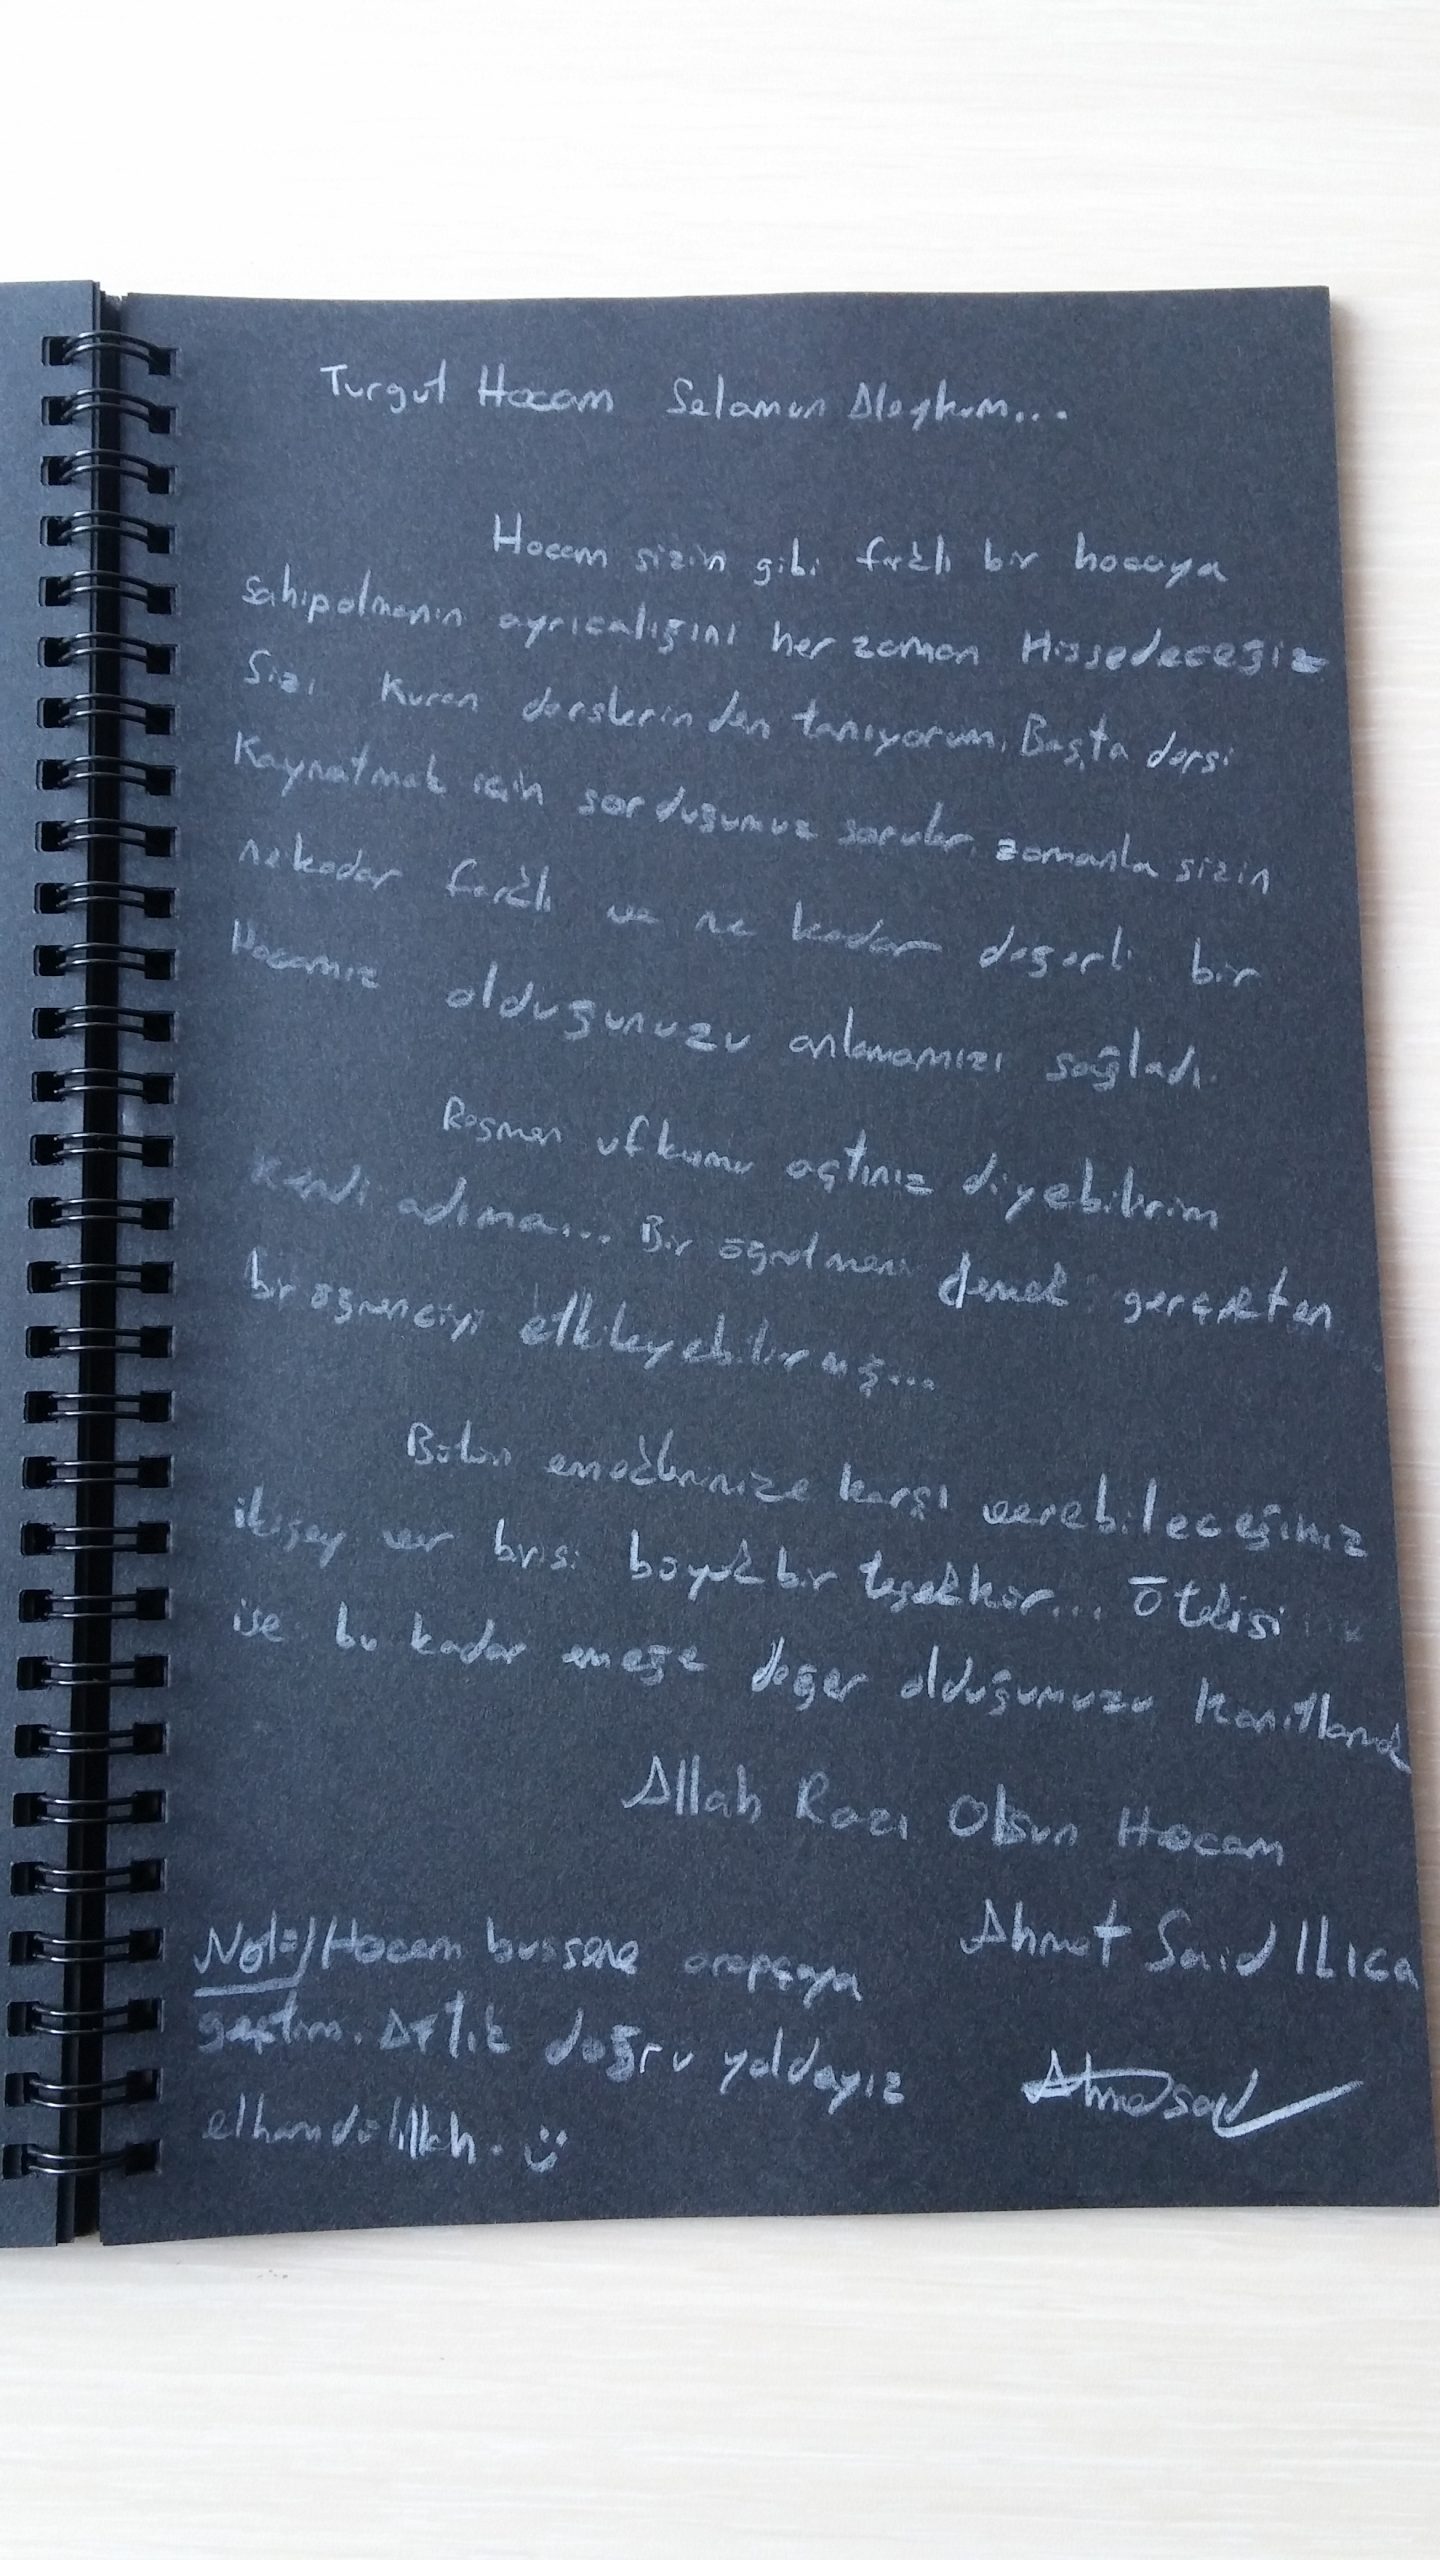 Turgut Hocam Selamun Aleykum...
Hocam sizin gibi farklı bir hocaya
sahipolmanın ayrıcalığını her zaman Hissedeceğiz
Sizi Kuran derslerinden tanıyorum. Başta dersi
Kaynatmak için sorduğumuz sorular, zamanla sizin
nekadar farklı ve ne kadar değerli bir
Hocamız olduğunuzu anlamamızı sağladı.
Resmen ufkumu açtınız diyebilirim
kendi adıma... Bir öğretmen demek gerçekten
bir öğrenciyi etkileyebilirmiş...
Bütün emeklerinize karşı verebileceğimiz
ikişey var birisi büyük bir teşekkür... Ötekisi
ise bu kadar emeğe değer olduğumuzu kanıtlamak
Allah Razı Olsun Hocam
Ahmet Said ILICA
Not:// Hocam bussene arapçaya
geçtim. Artık doğru yoldayız
elhamdülillah. :)
Ahmedsaid